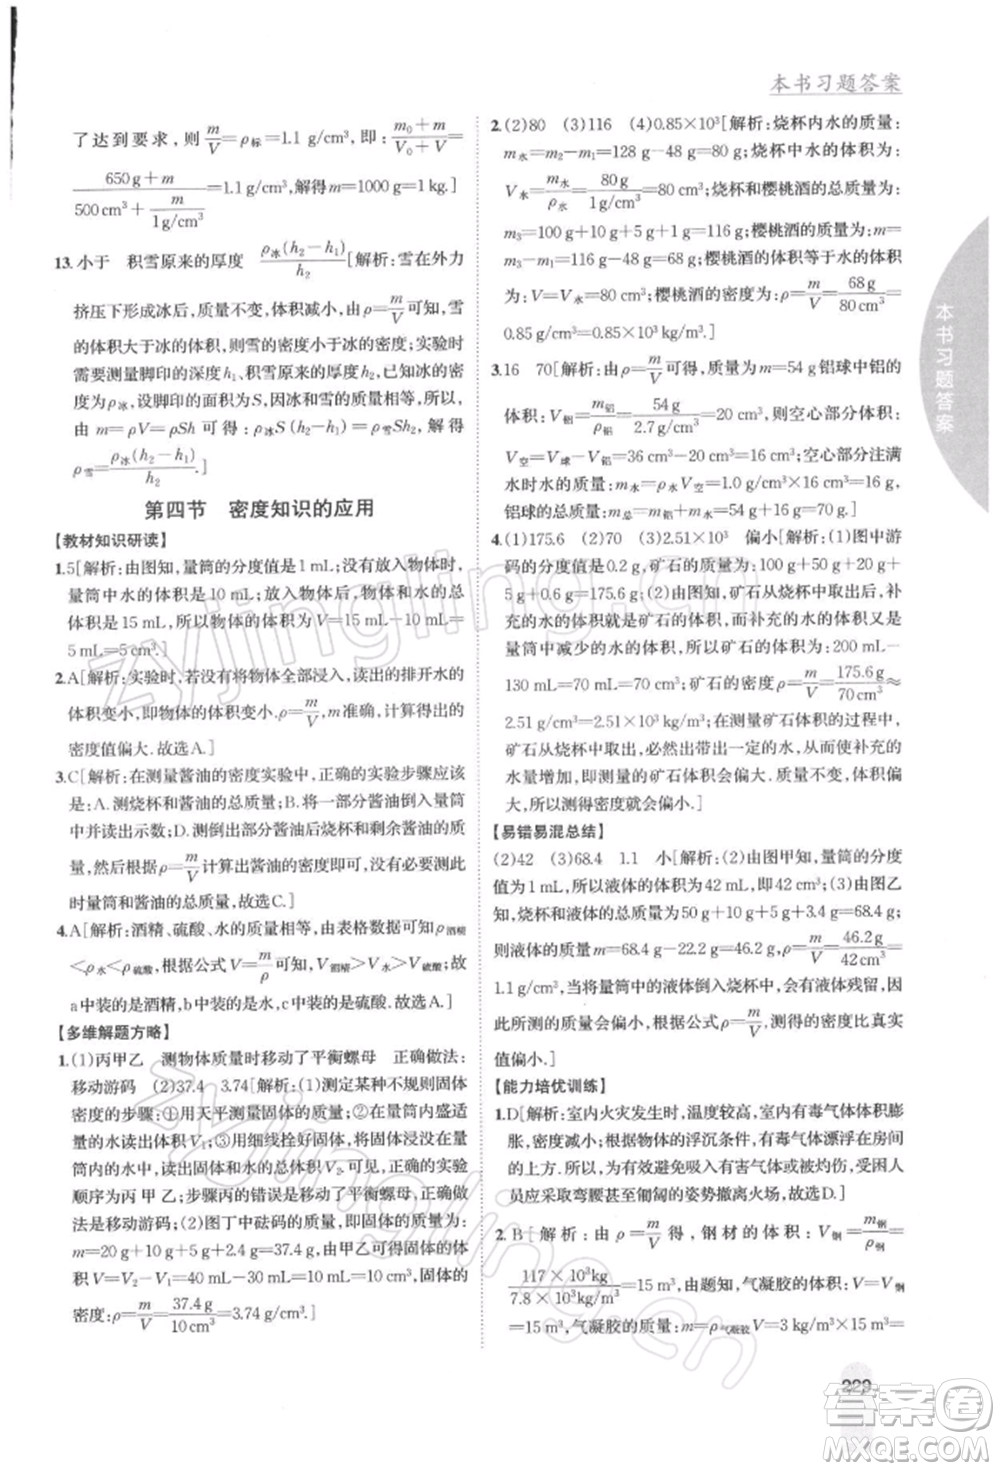 本书习题答案
了达到要求，则m/V=ρ标=1.1 g/cm³，即：(m₀+m)/(V₀+V)=
(650 g+m)/(500 cm³+m/(1 g/cm³))=1.1 g/cm³，解得 m=1000 g=1 kg.]
13.小于 积雪原来的厚度 ρ冰(h₂-h₁)/h₂[解析：雪在外力
挤压下形成冰后，质量不变，体积减小，由ρ=m/V可知，雪
的体积大于冰的体积，则雪的密度小于冰的密度.实验时
需要测量脚印的深度h₁、积雪原来的厚度h₂.因冰和雪的
质量相等，设脚印的面积为S，因冰和雪的质量相等，所
以，由 m=ρV=ρSh 可得，ρ冰S(h₂-h₁)=ρ雪Sh₂，解得
ρ雪=ρ冰(h₂-h₁)/h₂.]
第四节 密度知识的应用
【教材知识研读】
1.5[解析：由图知，量筒的分度值为1 mL，放入物体时，
量筒中水的体积为 10 mL；放入物体后，水和物体的总
体积是 15 mL，所以物体的体积为 V=15 mL-10 mL=
5 mL=5 cm³.]
2.A[解析：实验时，若没有将物体全部浸入，读出的排开水的
体积变小，即物体的体积变小.ρ=m/V，m准确，测得的
密度值偏大.故选A.]
3.C[解析：在测量酱油的密度实验中，正确的实验步骤应该
是：A.测烧杯和酱油的总质量；B.将一部分酱油倒入量筒
中并读出示数；D.测剩余酱油与烧杯和剩余酱油的质
量，然后根据ρ=m/V计算出酱油的密度即可，没有必要测空
时量筒和酱油的总质量.故选C.]
4.A[解析：酒精、硫酸、水的质量相等，由图及表中数据可知ρ酒精
<ρ水<ρ硫酸，根据公式V=m/ρ可知：V酒精>V水>V硫酸，故
a中装的是酒精，b中装的是水，c中装的是硫酸.故选A.]
【多维解题方略】
1.(1)丙甲乙 测物体质量时移动了平衡螺母 正确做法：
移动游码 (2)37.4 3.74[解析：(1)测定某种不规则固体
密度的步骤：①用天平测量固体的质量；②在量筒中装适量
水读出水的体积V₁；③用细线拴好固体，将固体浸没在量
筒内的水中，读出固体与水的总体积V₂.可见，正确的实验
顺序为丙 甲 乙；步骤丙的错误是移动了平衡螺母，正确做
法是移动游码.(2)图丁中砝码的质量，即固体的质量为
m=20 g+10 g+5 g+2.4 g=37.4 g，由甲乙可得，固体的
体积V=V₂-V₁=40 mL-30 mL=10 mL=10 cm³，固体的
密度：ρ=m/V=37.4 g/10 cm³=3.74 g/cm³.]
2.(2)80 (3)116 (4)0.85×10³[解析：烧杯内水的质量：
m水=m₂-m₁=128 g-48 g=80 g；烧杯中水的体积为：
V水=m水/ρ水=80 g/(1 g/cm³)=80 cm³；烧杯和樱桃酒的总质量为：
m₃=100 g+10 g+5 g+1 g=116 g；樱桃酒的质量为：m=
116 g-48 g=68 g；樱桃酒的体积等于水的体积等于
80 cm³，即：V=V水=80 cm³；樱桃酒的密度为：ρ=m/V=68 g/80 cm³
=0.85 g/cm³=0.85×10³ kg/m³.]
3.16 70[解析：由题意知，铝球的质量m=54 g，铝球中铝的
体积：V铝=m/ρ铝=54 g/(2.7 g/cm³)=20 cm³，则空心部分体积：
V空=V球-V铝=36 cm³-20 cm³=16 cm³；空心部分注满
水时水的质量：m水=ρ水V空=1.0 g/cm³×16 cm³=16 g，
铝球的总质量：m总=m铝+m水=54 g+16 g=70 g.]
4.(1)175.6 (2)70 (3)2.51×10³ 偏小[解析：(1)图中游
码的分度值是0.2 g，矿石的质量是：100 g+50 g+20 g+
5 g+0.6 g=175.6 g；(2)由图知，矿石的体积和补充的水
的体相同，所以矿石的体积是矿石的体积，而补充的水的体积是
量筒中减少的水的体积，所以矿石的体积为：200 mL-
130 mL=70 mL=70 cm³；矿石的密度：ρ=m/V=175.6 g/70 cm³≈
2.51 g/cm³=2.51×10³ kg/m³；(3)在测量矿石体积的过程中，
矿石从烧杯中取出，必然会带出一定的水，所以补充的
水量增加，会使测量的矿石体积会偏大.质量不变，体积偏
大，所以测得的密度值会偏小.]
【易错易混总结】
(2)42 (3)68.4 1.1 小[解析：(2)由图甲知，量筒的分度
值为1 mL，所以液体的体积为42 mL，即42 cm³；(3)由图乙
知，烧杯和液体的总质量为50 g+10 g+5 g+3.4 g=68.4 g；
则液体的质量m=68.4 g-22.2 g=46.2 g，ρ=m/V=46.2 g/42 cm³=
1.1 g/cm³，将量筒中的液体倒入烧杯中，会有液体残留，因
此所测液体质量会偏小，根据公式ρ=m/V，测得的密度比真实
值偏小.]
【能力培优训练】
1.D[解析：室内火灾发生时，温度较高，室内有毒气体体积膨
胀，密度减小，根据物体的浮沉条件，有毒气体漂浮在房间
的上方.为避免吸入有毒气体或者被灼伤，受困人
员应采取弯腰甚至匍匐的姿势撤离火场，故选D.]
2.B[解析：由ρ=m/V得，钢材的体积：V钢=m钢/ρ钢=
(117×10³kg)/(7.8×10³kg/m³)=15 m³，由题知，气凝胶的体积：V=V钢
=15 m³，气凝胶的质量：m=ρ气凝胶V=3 kg/m³×15 m³
本书习题答案
229
zyjingling.cn
zyjingling.cn
答案圈
MXQE.COM